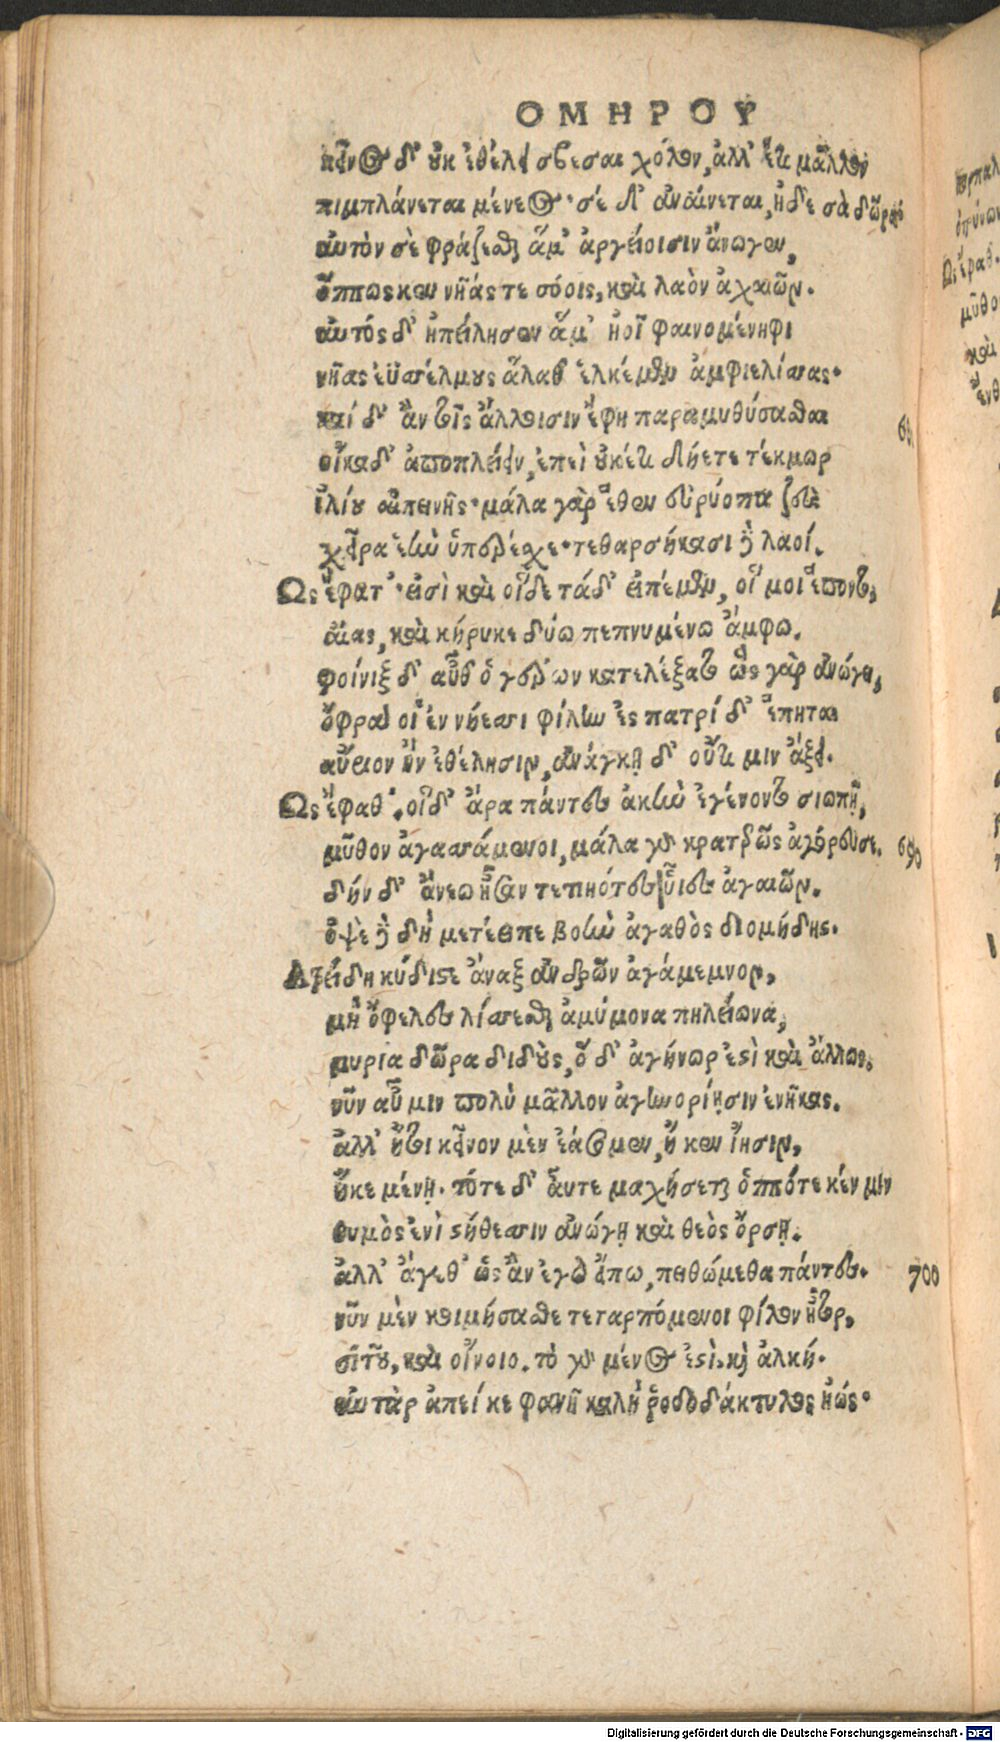 ΟΜΗΡΟΥ
κεῖνος δ' οὐκ ἐθέλει σβέσαι χόλον, ἀλλ' ἔτι μᾶλλον
πιμπλάνεται μένεος· σὲ δ' ἀναίνεται, ἠδὲ σὰ δῶρα·
αὐτὸν σὲ φράζεσθαι ἅμ' ἀργείοισιν ἄνωγεν,
ὅππως κεν νῆάς τε σόοις, καὶ λαὸν ἀχαιῶν.
αὐτός δ' ἠπείλησεν ἅμ' ἠοῖ φαινομένηφι
νῆας ἐϋσέλμους ἅλαδ' ἑλκέμεν ἀμφιελίσσας·
καί δ' ἂν τοῖς ἄλλοισιν ἔφη παραμυθήσασθαι
οἴκαδ' ἀποπλείειν, ἐπεὶ οὐκέτι δήετε τέκμωρ
ἰλίου αἰπεινῆς· μάλα γάρ ἕθεν εὐρύοπα ζεὺς
χεῖρα ἑὴν ὑπερέσχε· τεθαρσήκασι δὲ λαοί.
Ως ἔφατ'· εἰσὶ καὶ οἵδε τάδ' εἰπέμεν, οἵ μοι ἕποντο,
αἴας, καὶ κήρυκε δύω πεπνυμένω ἄμφω.
φοίνιξ δ' αὖθ' ὁ γέρων κατελέξατο ὣς γὰρ ἀνώγει,
ὄφρα οἱ ἐν νήεσσι φίλην ἐς πατρίδ' ἕπηται
αὔριον ἢν ἐθέλησιν, ἀνάγκῃ δ' οὔτι μιν ἄξει.
Ως ἔφαθ'. οἱ δ' ἄρα πάντες ἀκὴν ἐγένοντο σιωπῇ,
μῦθον ἀγασσάμενοι, μάλα γὰρ κρατερῶς ἀγόρευσε. 690
δήν δ' ἄνεω ἦσαν τετιηότες υἷες ἀχαιῶν.
ὀψὲ δὲ δὴ μετέειπε βοὴν ἀγαθὸς διομήδης.
Ατρείδη κύδιστε ἄναξ ἀνδρῶν ἀγάμεμνον,
μὴ ὄφελες λίσσεσθαι ἀμύμονα πηλείωνα,
μυρία δῶρα διδοὺς, ὅ δ' ἀγήνωρ ἐστὶ καὶ ἄλλως.
νῦν αὖ μιν πολὺ μᾶλλον ἀγηνορίῃσιν ἐνῆκας.
ἀλλ' ἤτοι κεῖνον μὲν ἐάσομεν, ἤ κεν ἴησιν,
ἤ κε μένῃ. τότε δ' αὖτε μαχήσεται ὁππότε κέν μιν
θυμὸς ἐνὶ στήθεσσιν ἀνώγῃ καὶ θεὸς ὄρσῃ.
ἀλλ' ἄγεθ' ὡς ἂν ἐγὼ εἴπω, πειθώμεθα πάντες. 700
νῦν μὲν κοιμήσασθε τεταρπόμενοι φίλον ἦτορ,
σίτου, καὶ οἴνοιο. τὸ γὰρ μένος ἐστὶ καὶ ἀλκή.
αὐτὰρ ἀπεί κε φανῇ καλὴ ῥοδοδάκτυλος ἠώς·
Digitalisierung gefördert durch die Deutsche Forschungsgemeinschaft - DFG